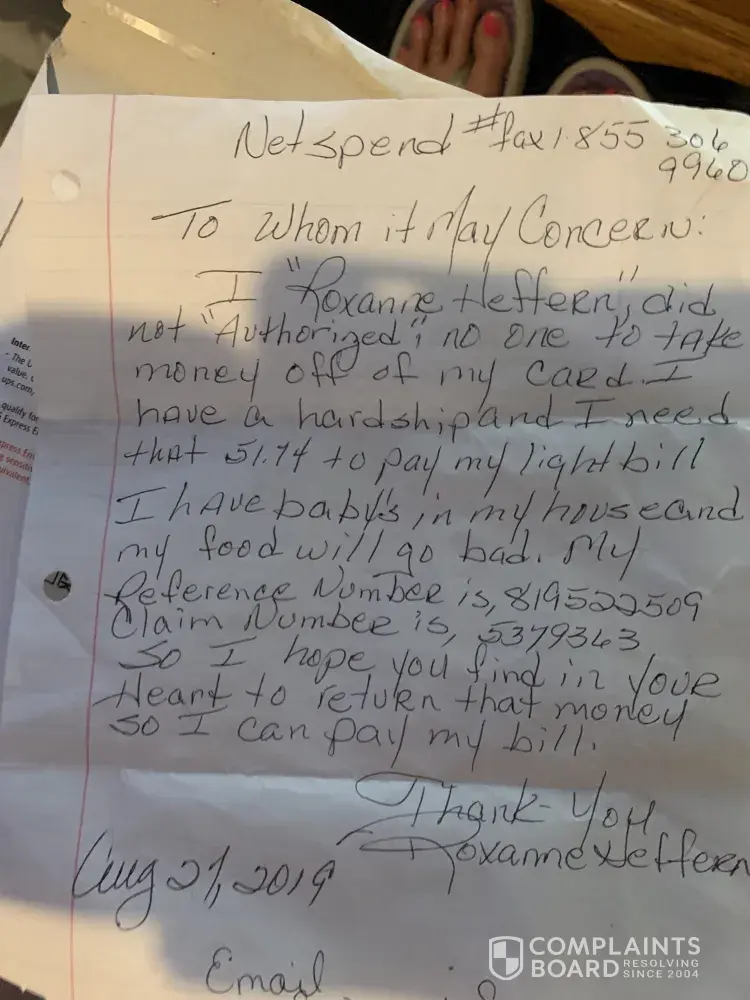 Netspend #fax 1.855 306
9960
To Whom it May Concern:
I "Roxanne Heffern", did
not "Authorized", no one to take
money off of my card. I
have a hardship and I need
that 51.74 to pay my light bill
I have baby's in my house and
my food will go bad. My
Reference Number is, 819522509
Claim Number is, 5379363
So I hope you find in your
Heart to return that money
so I can pay my bill.
Thank-You
Roxanne Heffern
Aug 21, 2019
Email
Inter
- The U
value,
ups.com,
qualify for
Express E
press Em
sensiti
quivalent
COMPLAINTS
BOARD RESOLVING
SINCE 2004